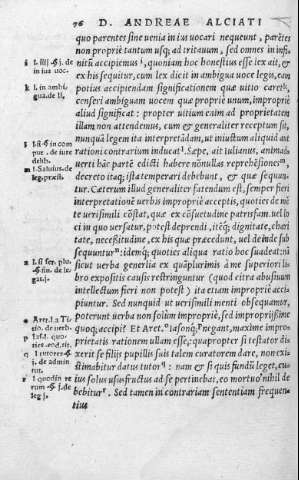 76 D. ANDREAE ALCIATI
quo parentes sine venia in ius vocari nequeunt, parẽtes
non propriè tantum usq; ad tritauum, sed omnes in infi-
nitũ accipiemus i, quoniam hoc honestius esse lex ait, &
ex his sequitur, cum lex dicit in ambigua uoce legis, eam
potius accipiendam significationem quæ uitio caret k,
censeri ambiguam uocem quæ propriè unum, impropriè
aliud significat: propter uitium enim ad proprietatem
illam non attendemus, cum & generaliter receptum sit,
nunquã legem ita interpretãdam, ut iniustum aliquid aut
rationi contrarium inducat l. Sæpe, ait iulianus, animad-
uerti hãc partẽ edicti habere nõnullas reprehẽsiones m,
decreto itaq; ista temperari debebunt, & quæ sequun-
tur. Cæterum illud generaliter fatendum est, semper fieri
interpretationẽ uerbis impropriè acceptis, quoties de mẽ
te uerisimili cõstat, quæ ex cõsuetudine patrisfam. uel lo
ci in quo uersatur, põt est deprendi, itẽq; dignitate, chari
tate, necessitudine, ex his quæ præcedunt, uel deinde sub
sequuntur n: idemq; quoties aliqua ratio hoc suadeat: ni
si cut uerba generalia ex quàplurimis à me superiori li-
bro expositis causis restringuntur (quod citra abusionum
intellectum fieri non potest) ita etiam impropriè acci-
piuntur. Sed nunquid ut uerisimili menti obsequamur,
poterunt uerba non solùm impropriè, sed impropriissime
quoq; accipi? Et Aret. o Iasonq; p negant, maxime impro-
prietatis rationem ullam esse,: quapropter si testator di-
xerit se filijs pupillis suis talem curatorem dare, non exi-
stimabitur datus tutor q: nam & si quis fundũ leget, cu-
ius solus ususfructus ad se pertinebat, eo mortuo nihil de
bebitur r. Sed tamen in contrariam sententiam frequen-
tius
i l. iiij. § j. de
in ius uoc.
k l. in ambi-
gua. de ll.
de iure
delib.
m l. Saluius. de
leg. præst.
gat. j.
o Aret. l.
p Iasd. quo-
q l. tutores §
j. de admin
r l. quod in re
rum § j. de
leg j.